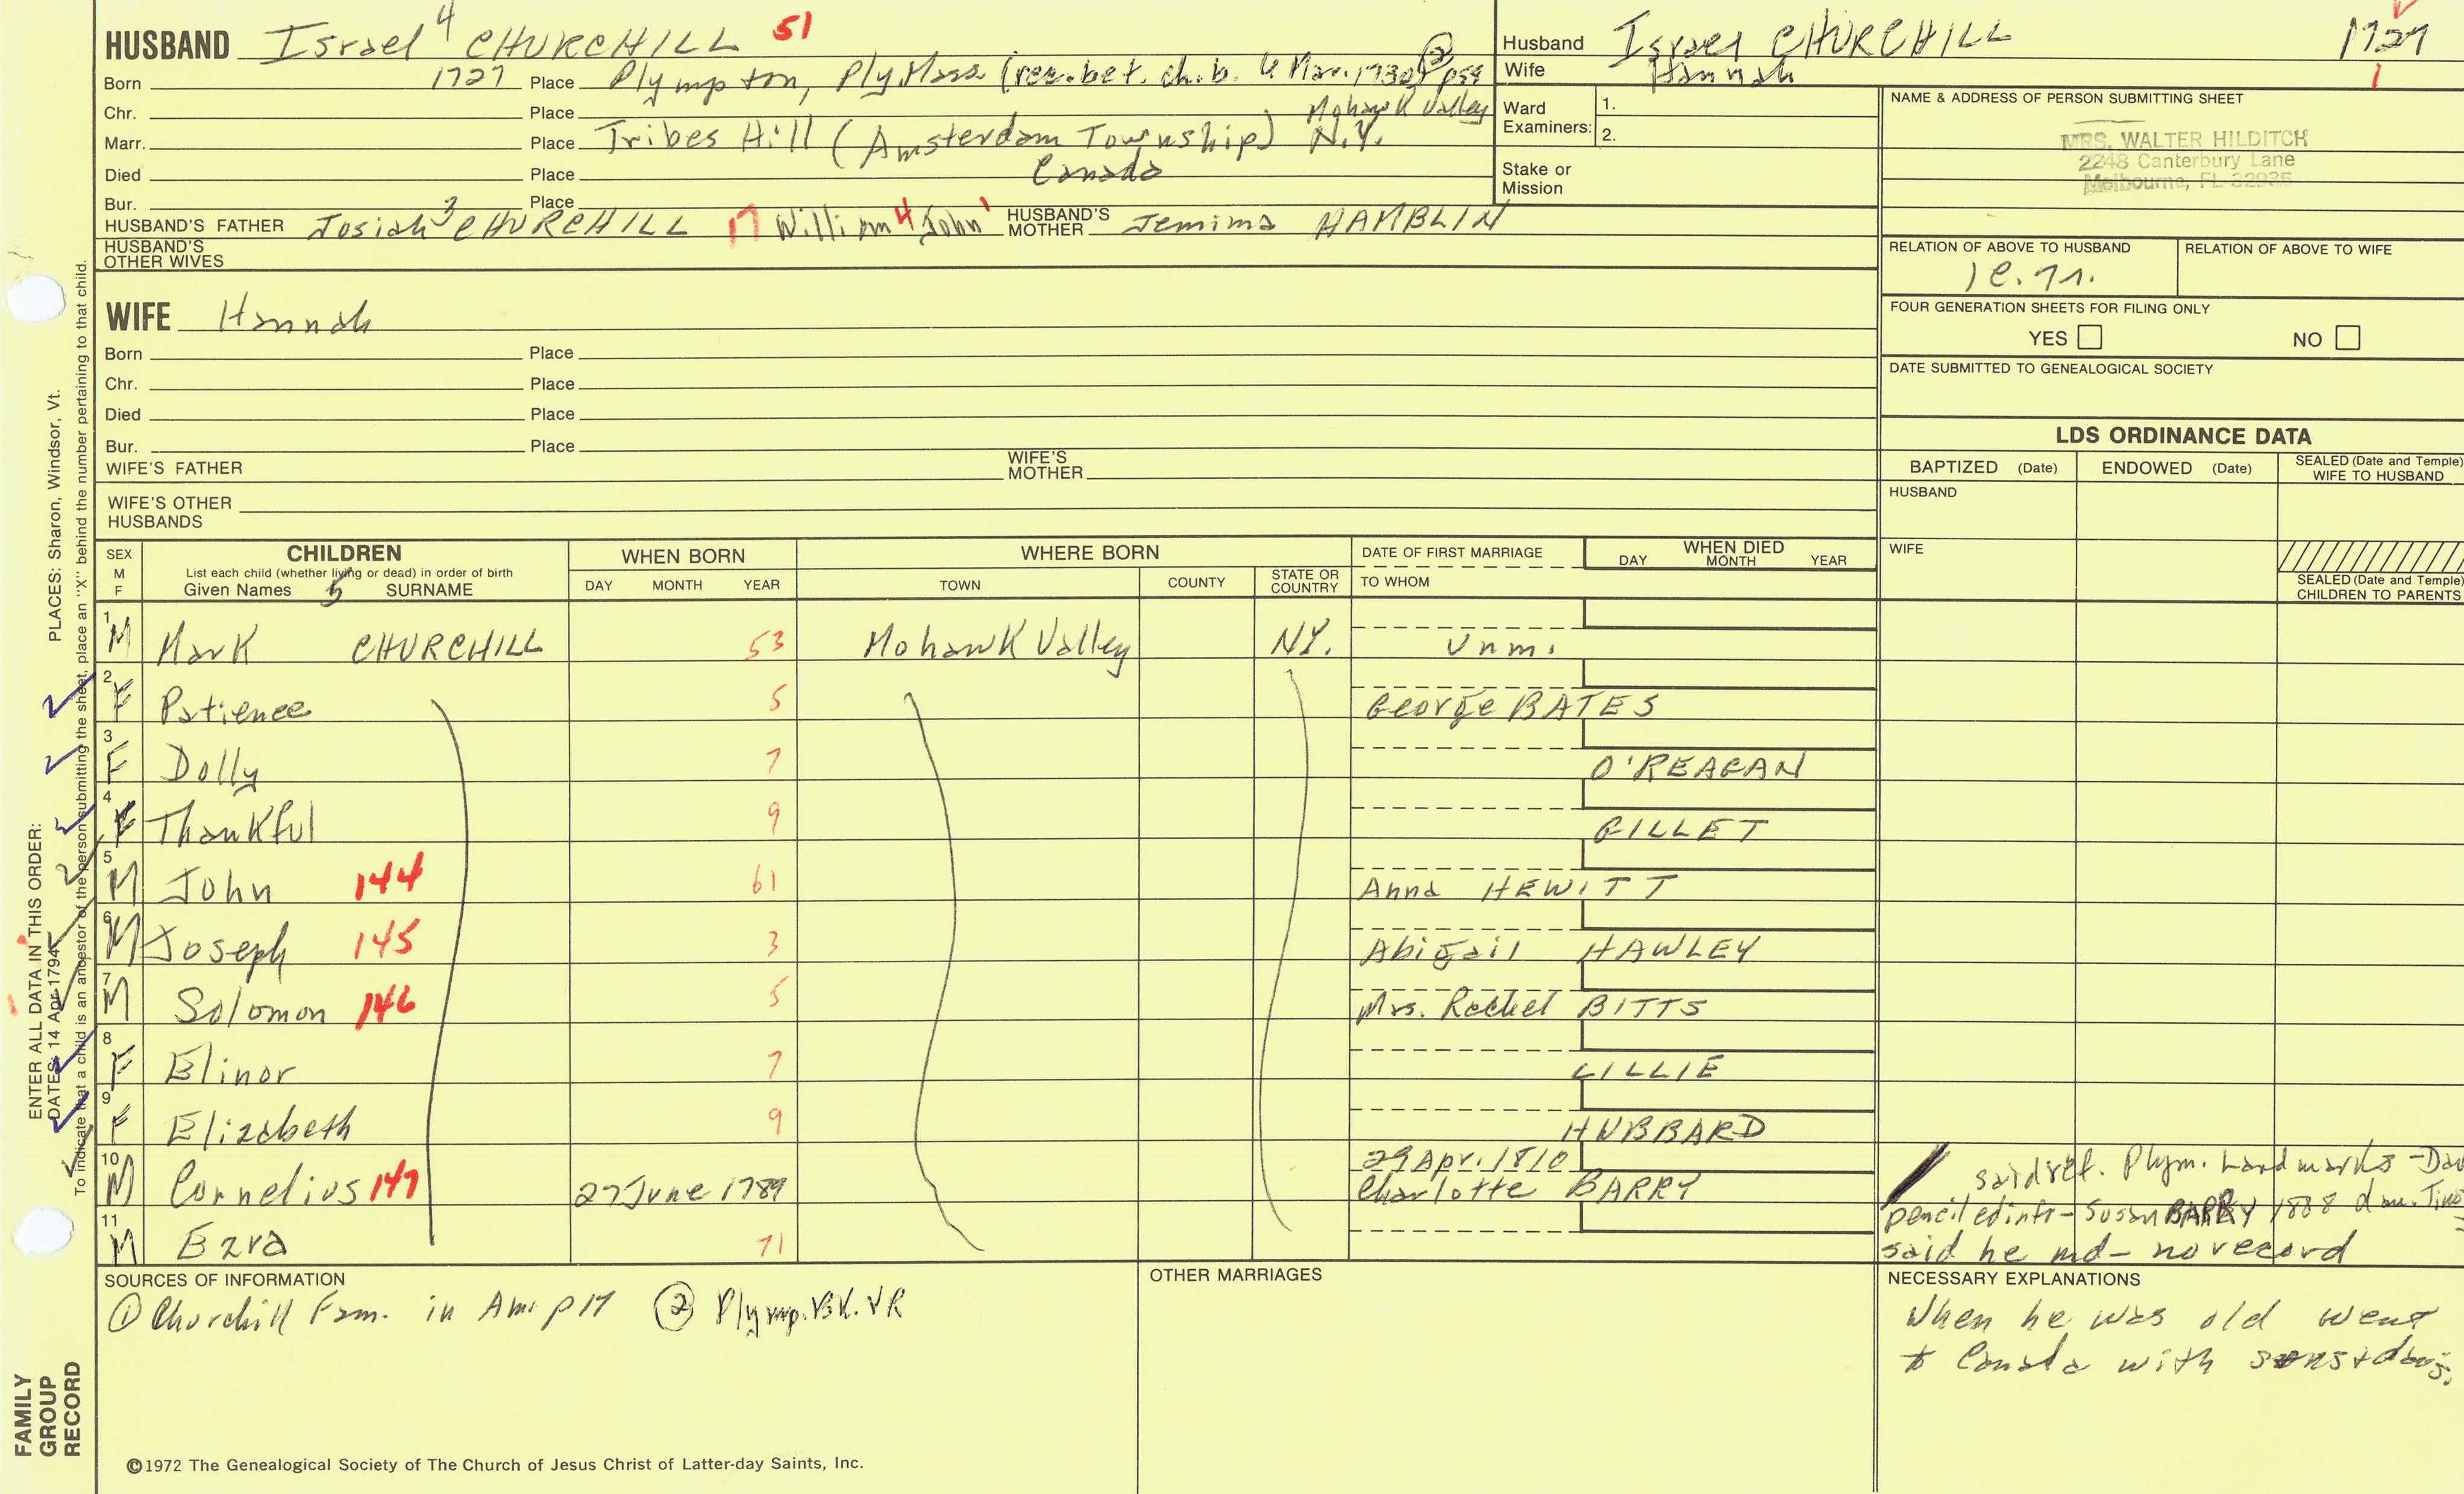 HUSBAND Israel 4 CHURCHILL 51
Born 1727 Place Plympton, Ply. Mass (rec. bet. ch. b. 6 Mar. 1730) ② p59
Chr. Place Mohawk Valley
Marr. Place Tribes Hill (Amsterdam Township) N.Y.
Died Place Canada
Bur. Place
HUSBAND'S FATHER Josiah 3 CHURCHILL 17 William 4 John 1 HUSBAND'S MOTHER Jemima HAMBLIN
HUSBAND'S OTHER WIVES
Husband Israel CHURCHILL 1727
Wife Hannah 1
Ward Examiners: 1.
2.
Stake or Mission
NAME & ADDRESS OF PERSON SUBMITTING SHEET
MRS. WALTER HILDITCH
2248 Canterbury Lane
Melbourne, FL 32935
RELATION OF ABOVE TO HUSBAND RELATION OF ABOVE TO WIFE
FOUR GENERATION SHEETS FOR FILING ONLY
YES NO
DATE SUBMITTED TO GENEALOGICAL SOCIETY
WIFE Hannah
Born Place
Chr. Place
Died Place
Bur. Place
WIFE'S FATHER WIFE'S MOTHER
WIFE'S OTHER HUSBANDS
LDS ORDINANCE DATA
BAPTIZED (Date) ENDOWED (Date) SEALED (Date and Temple) WIFE TO HUSBAND
HUSBAND
WIFE
SEALED (Date and Temple) CHILDREN TO PARENTS
SEX M F CHILDREN List each child (whether living or dead) in order of birth Given Names 5 SURNAME
WHEN BORN DAY MONTH YEAR
WHERE BORN TOWN COUNTY STATE OR COUNTRY
DATE OF FIRST MARRIAGE TO WHOM
WHEN DIED DAY MONTH YEAR
1 M Mark CHURCHILL 53 Mohawk Valley NY. Unm.
2 F Patience 5 George BATES
3 F Dolly 7 O'REAGAN
4 F Thankful 9 GILLET
5 M John 144 61 Anna HEWITT
6 M Joseph 145 3 Abigail HAWLEY
7 M Solomon 146 5 Mrs. Rachel BITTS
8 F Elinor 7 LILLIE
9 F Elizabeth 9 HUBBARD
10 M Cornelius 147 27 June 1789 29 Apr. 1810 Charlotte BARRY
11 M Ezra 71
said ref. Plym. Landmarks - Dav
penciled info - Susan BARRY 1888 dau.
said he md - no record
SOURCES OF INFORMATION
① Churchill Fam. in Am. p 17 ② Plymp. BK. VR
OTHER MARRIAGES
NECESSARY EXPLANATIONS
When he was old went
to Canada with sons + daus.
©1972 The Genealogical Society of The Church of Jesus Christ of Latter-day Saints, Inc.
FAMILY GROUP RECORD
ENTER ALL DATA IN THIS ORDER:
DATES: 14 Apr 1794
PLACES: Sharon, Windsor, Vt.
To indicate that a child is an ancestor of the person submitting the sheet, place an "X" behind the number pertaining to that child.